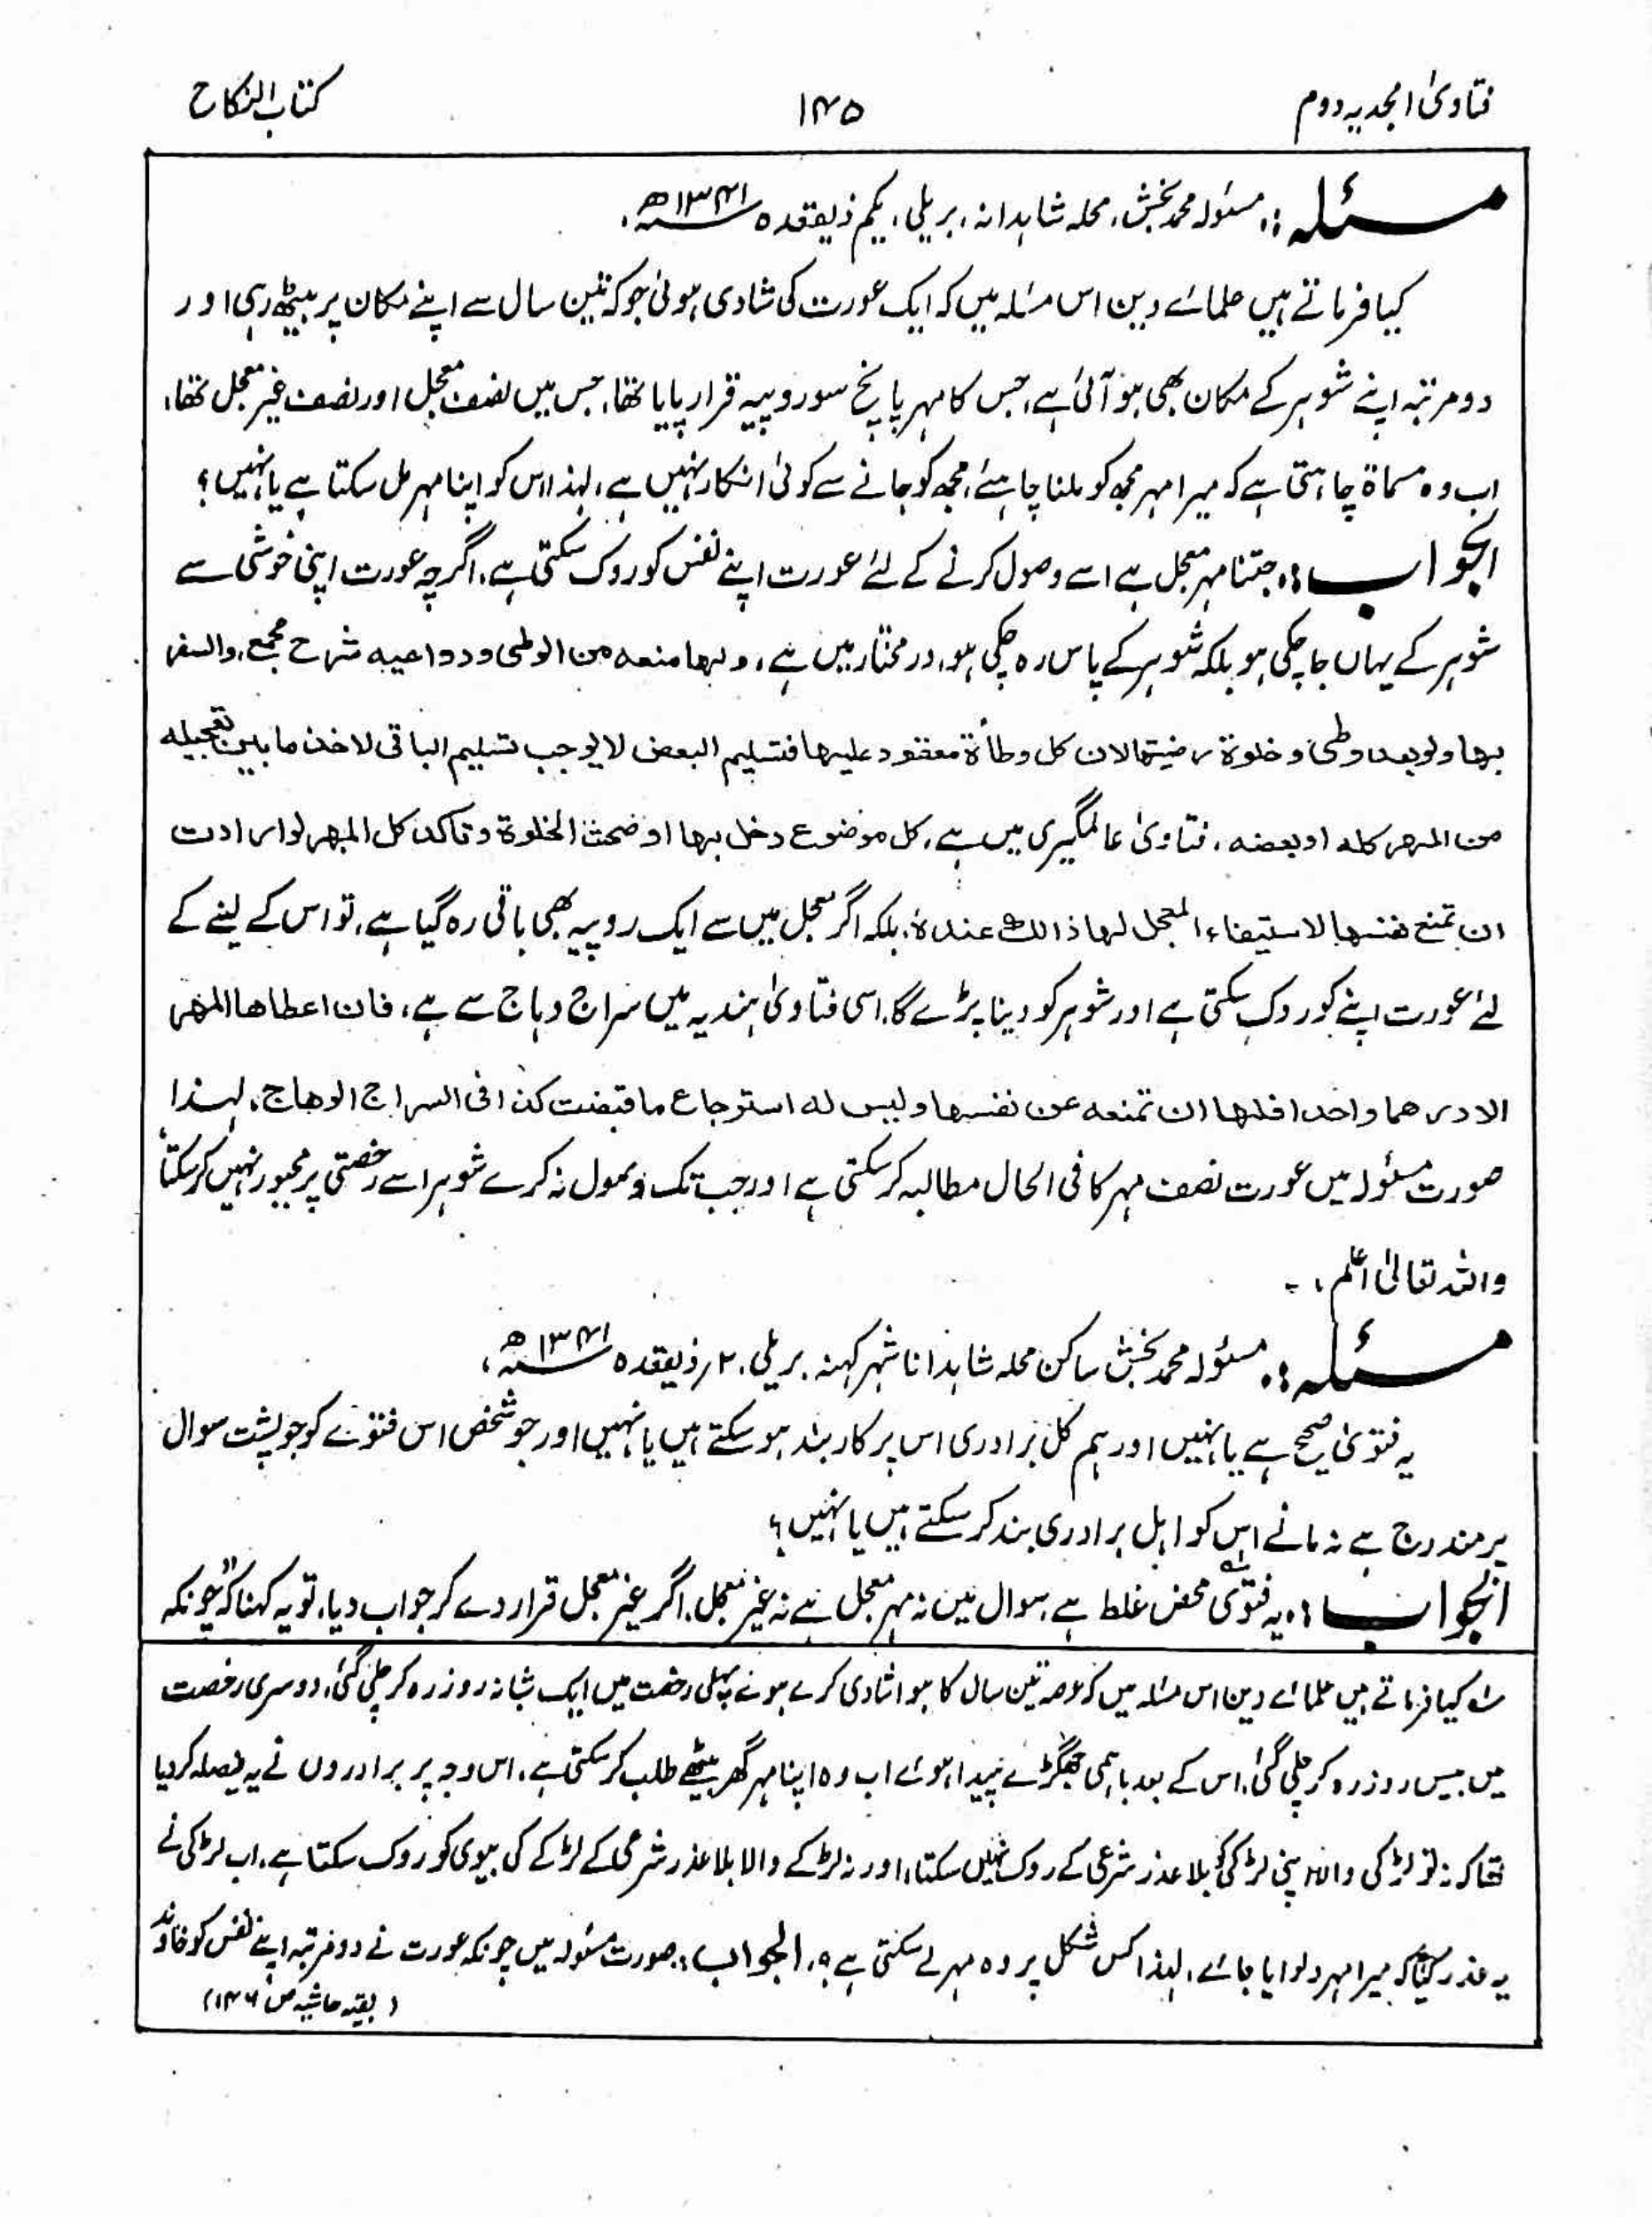 فتاویٰ امجدیہ دوم ۱۴۵ کتاب النکاح
مسئلہ :۔ مسئولہ محمد بخش، محلہ شاہدانہ، بریلی، یکم ذیقعدہ ۱۳۴۱ھ،
کیا فرماتے ہیں علمائے دین اس مسئلہ میں کہ ایک عورت کی شادی ہوئی جو کہ تین سال سے اپنے مکان پر بیٹھ رہی اور
دو مرتبہ اپنے شوہر کے مکان بھی ہو آئی ہے، جس کا مہر پانچ سو روپیہ قرار پایا تھا، جس میں نصف معجل اور نصف غیر معجل تھا،
اب وہ مسماۃ چاہتی ہے کہ میرا مہر مجھ کو ملنا چاہئے، مجھ کو جانے سے کوئی انکار نہیں ہے، لہذا اس کو اپنا مہر مل سکتا ہے یا نہیں؟
الجواب :۔ جتنا مہر معجل ہے اسے وصول کرنے کے لئے عورت اپنے نفس کو روک سکتی ہے، اگرچہ عورت اپنی خوشی سے
شوہر کے یہاں جا چکی ہو بلکہ شوہر کے پاس رہ چکی ہو، در مختار میں ہے، ولہا منعہ من الوطی ودواعیہ شرح مجمع، والسفر
بہا ولو بعد وطئ وخلوۃ رضیتہا لان کل وطأۃ معقود علیہا فتسلیم البعض لا یوجب تسلیم الباقی لاخذ ما بین تعجیلہ
من المہر کلہ او بعضہ، فتاویٰ عالمگیری میں ہے، کل موضوع دخل بہا او ضحت الخلوۃ وتاکد کل المہر لو ارادت
ان تمنع نفسہا لاستیفاء المعجل لہا ذالک عندہٗ، بلکہ اگر معجل میں سے ایک روپیہ بھی باقی رہ گیا ہے، تو اس کے لینے کے
لئے عورت اپنے کو روک سکتی ہے اور شوہر کو دینا پڑے گا، اسی فتاویٰ ہندیہ میں سراج وہاج سے ہے، فان اعطاھا المھر
الا درھما واحدا فلھا ان تمنعہ عن نفسہا ولیس لہ استرجاع ما قبضت کذا فی السراج الوھاج، لہذا
صورت مسئولہ میں عورت نصف مہر کا فی الحال مطالبہ کر سکتی ہے اور جب تک وصول نہ کرے شوہر اسے رخصتی پر مجبور نہیں کر سکتا،
واللہ تعالیٰ اعلم،۔
مسئلہ :۔ مسئولہ محمد بخش ساکن محلہ شاہدانا شہر کہنہ بریلی، ۲؍ ذیقعدہ ۱۳۴۱ھ،
یہ فتویٰ صحیح ہے یا نہیں اور ہم کل برادری اس پر کاربند ہو سکتے ہیں یا نہیں اور جو شخص اس فتوے کو جو پشت سوال
پر مندرج ہے نہ مانے اس کو اہل برادری بند کر سکتے ہیں یا نہیں؟
الجواب :۔ یہ فتویٰ محض غلط ہے، سوال میں نہ مہر معجل ہے نہ غیر معجل، اگر غیر معجل قرار دے کر جواب دیا، تو یہ کہنا کہ "چونکہ
ـلـہ کیا فرماتے ہیں علمائے دین اس مسئلہ میں کہ عرصہ تین سال کا ہوا شادی کرے ہوئے پہلی رخصت میں ایک شبانہ روز رہ کر چلی گئی، دوسری رخصت
میں بیس روز رہ کر چلی گئی، اس کے بعد باہمی جھگڑے پیدا ہوئے اب وہ اپنا مہر گھر بیٹھے طلب کر سکتی ہے، اس وجہ پر برادروں نے یہ فیصلہ کر دیا
تھا کہ نہ تو لڑکی والا اپنی لڑکی کو بلا عذر شرعی کے روک نہیں سکتا، اور نہ لڑکے والا بلا عذر شرعی کے لڑکے کی بیوی کو روک سکتا ہے، اب لڑکی نے
یہ عذر کیا کہ میرا مہر دلوایا جائے، لہذا کس شکل پر وہ مہر لے سکتی ہے؟، الجواب :۔ صورت مسئولہ میں چونکہ عورت نے دو مرتبہ اپنے نفس کو خاوند
(بقیہ حاشیہ ص ۱۴۶)